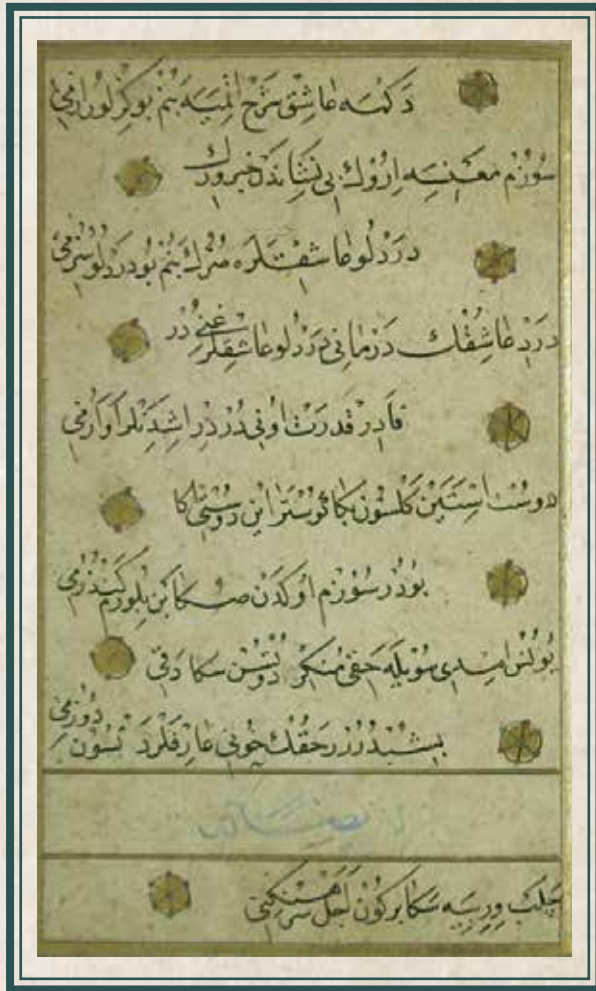 دكمه عاشق شرح اتميه بنم بو كزلو رازمى
سوزم معنيسه اروك بى نشاندن خبر ورك
دردلو عاشقلره صرك بنم بو دردلو سوزمى
درد عاشقك درمانى دردلو عاشقلر غنى در
قادر قدرت اونى دردر اشدنلر اوازمى
دوست استين كلسون بكا كوسترا ين دوستى كا
بودر سوزم اوكدن صكا بن بلورم كندزمى
يونس امدى سويله حقى منكر دوتسن سكا دقى
بيشندردر حقك خونى عارفلر دتسون دوزمى
چلب وريسه سكا بركون اجل سرهنكنى